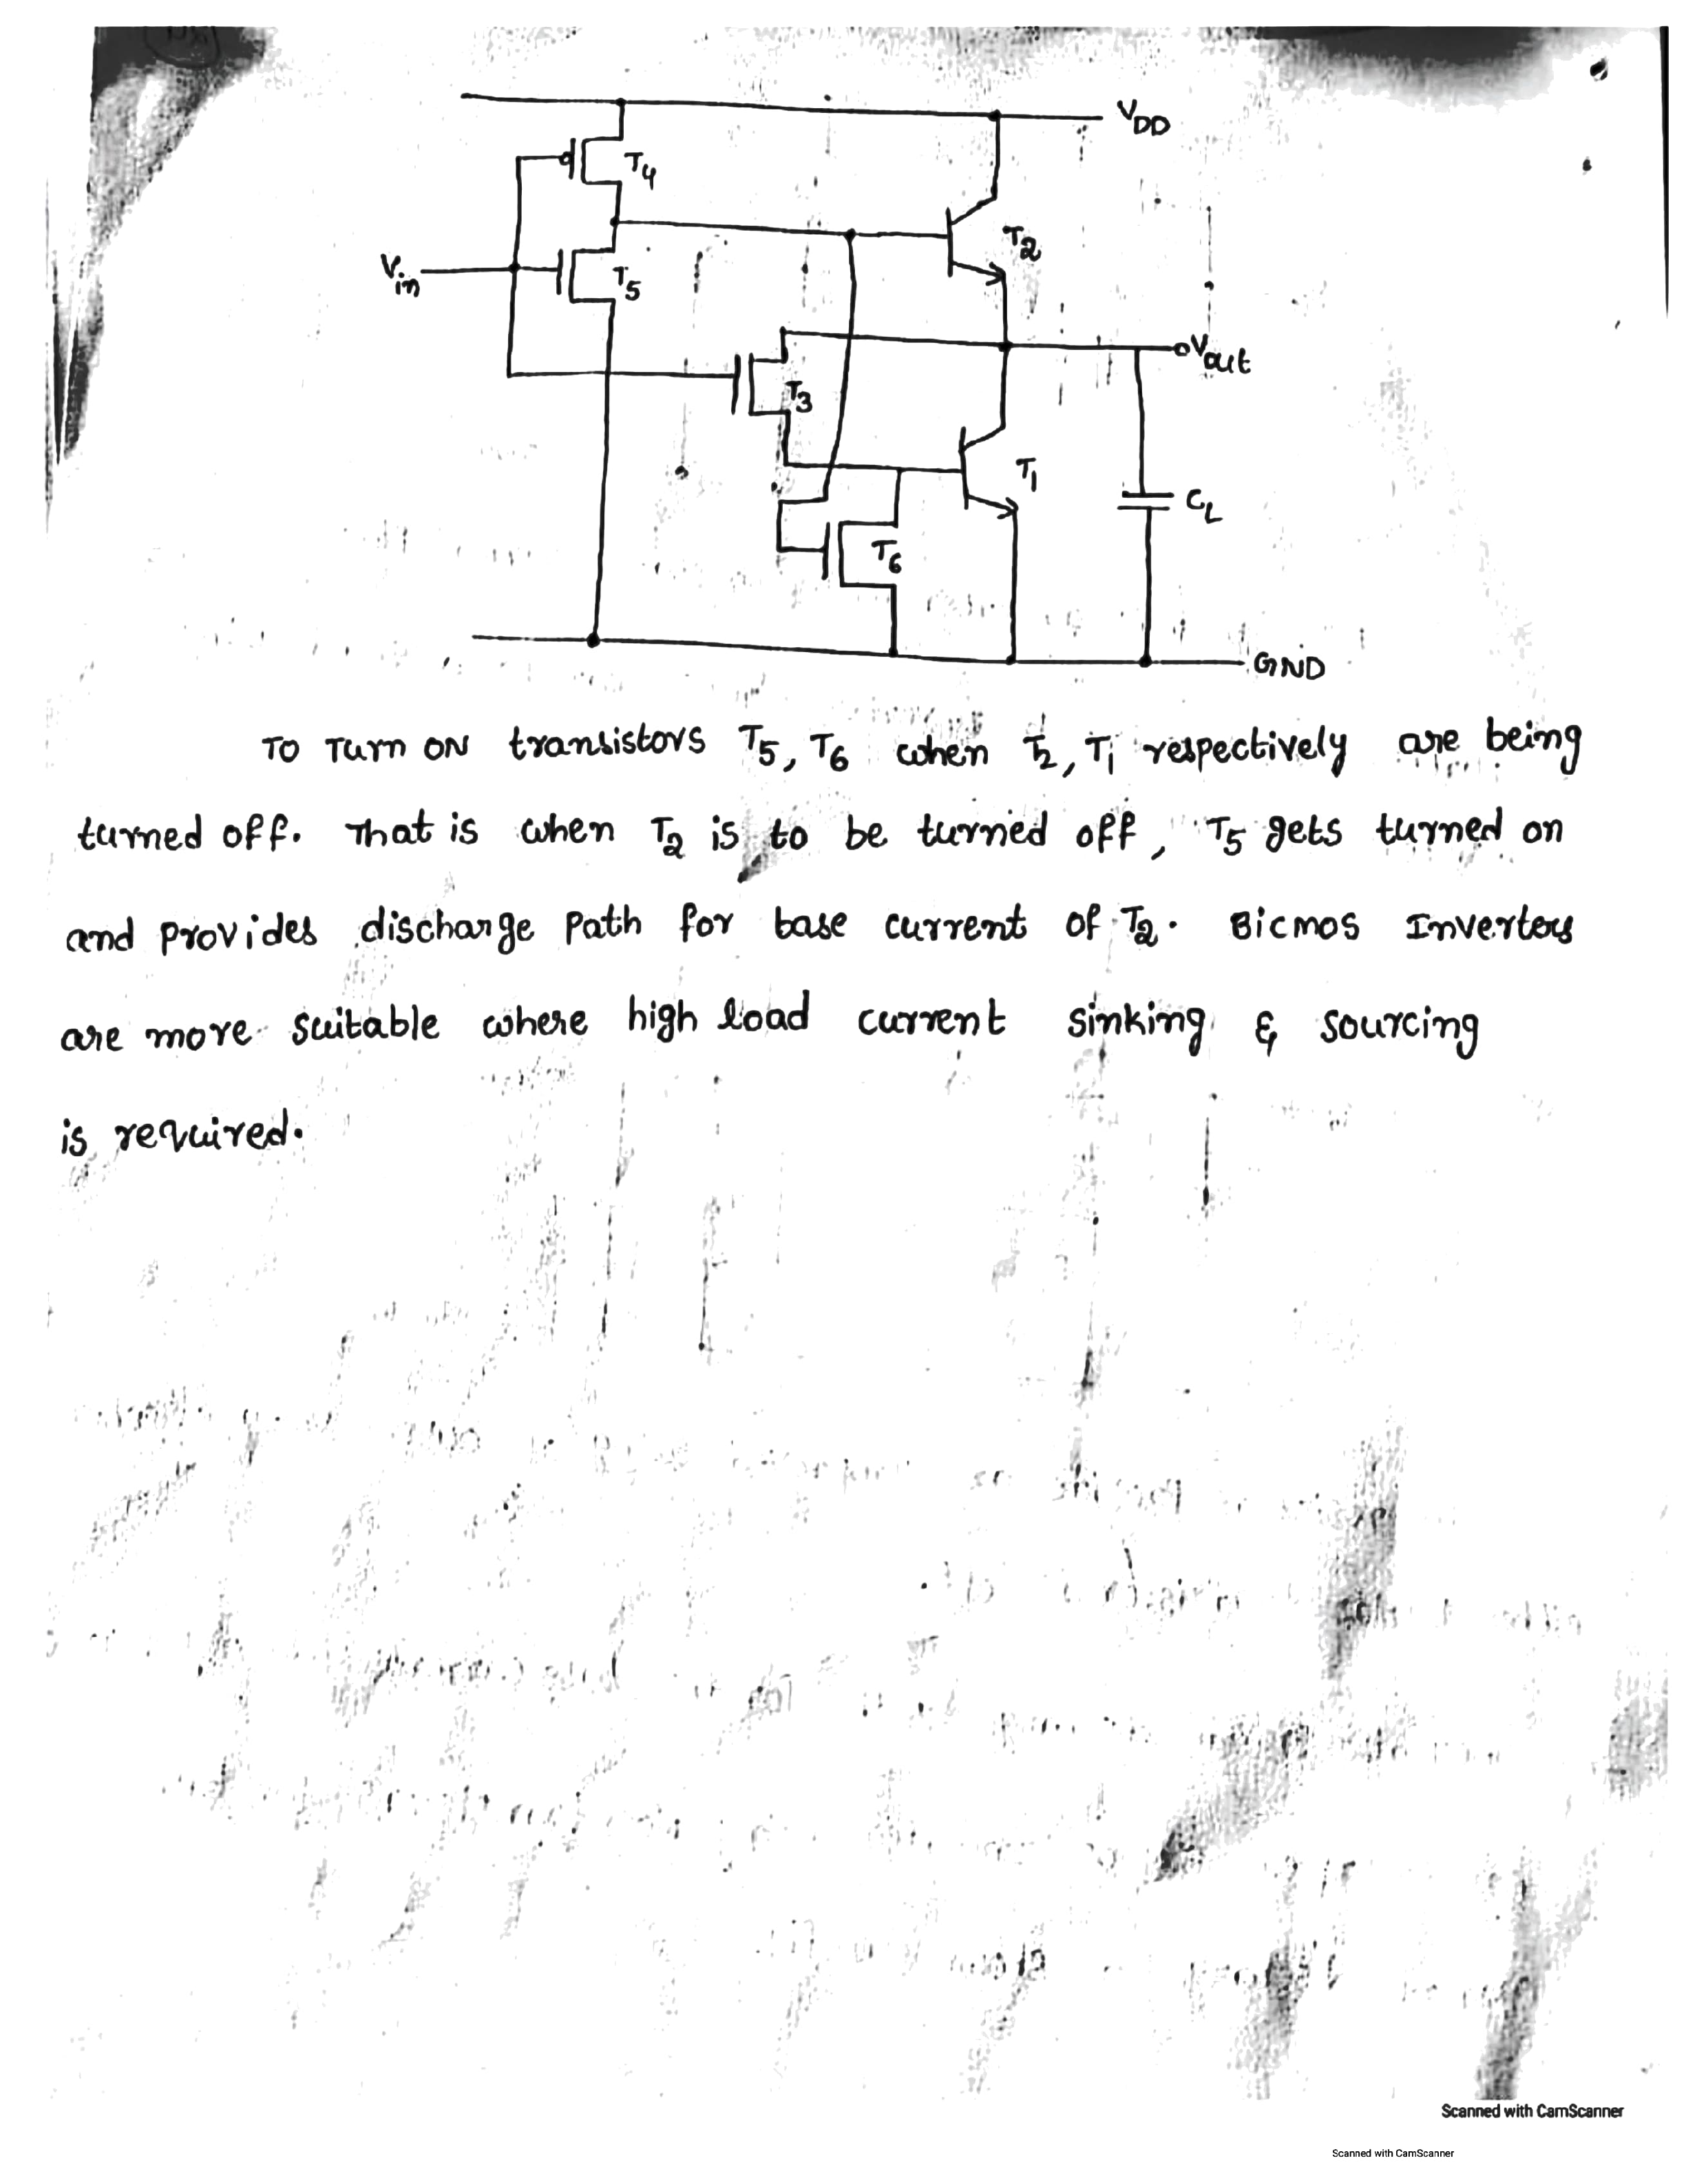 VDD
T4
T2
Vin
T5
Vout
T3
T1
CL
T6
GND
To Turn ON transistors T5, T6 when T2, T1 respectively are being
turned off. That is when T2 is to be turned off, T5 gets turned on
and provides discharge Path for base current of T2. Bicmos Inverters
are more suitable where high load current sinking & sourcing
is required.
Scanned with CamScanner
Scanned with CamScanner